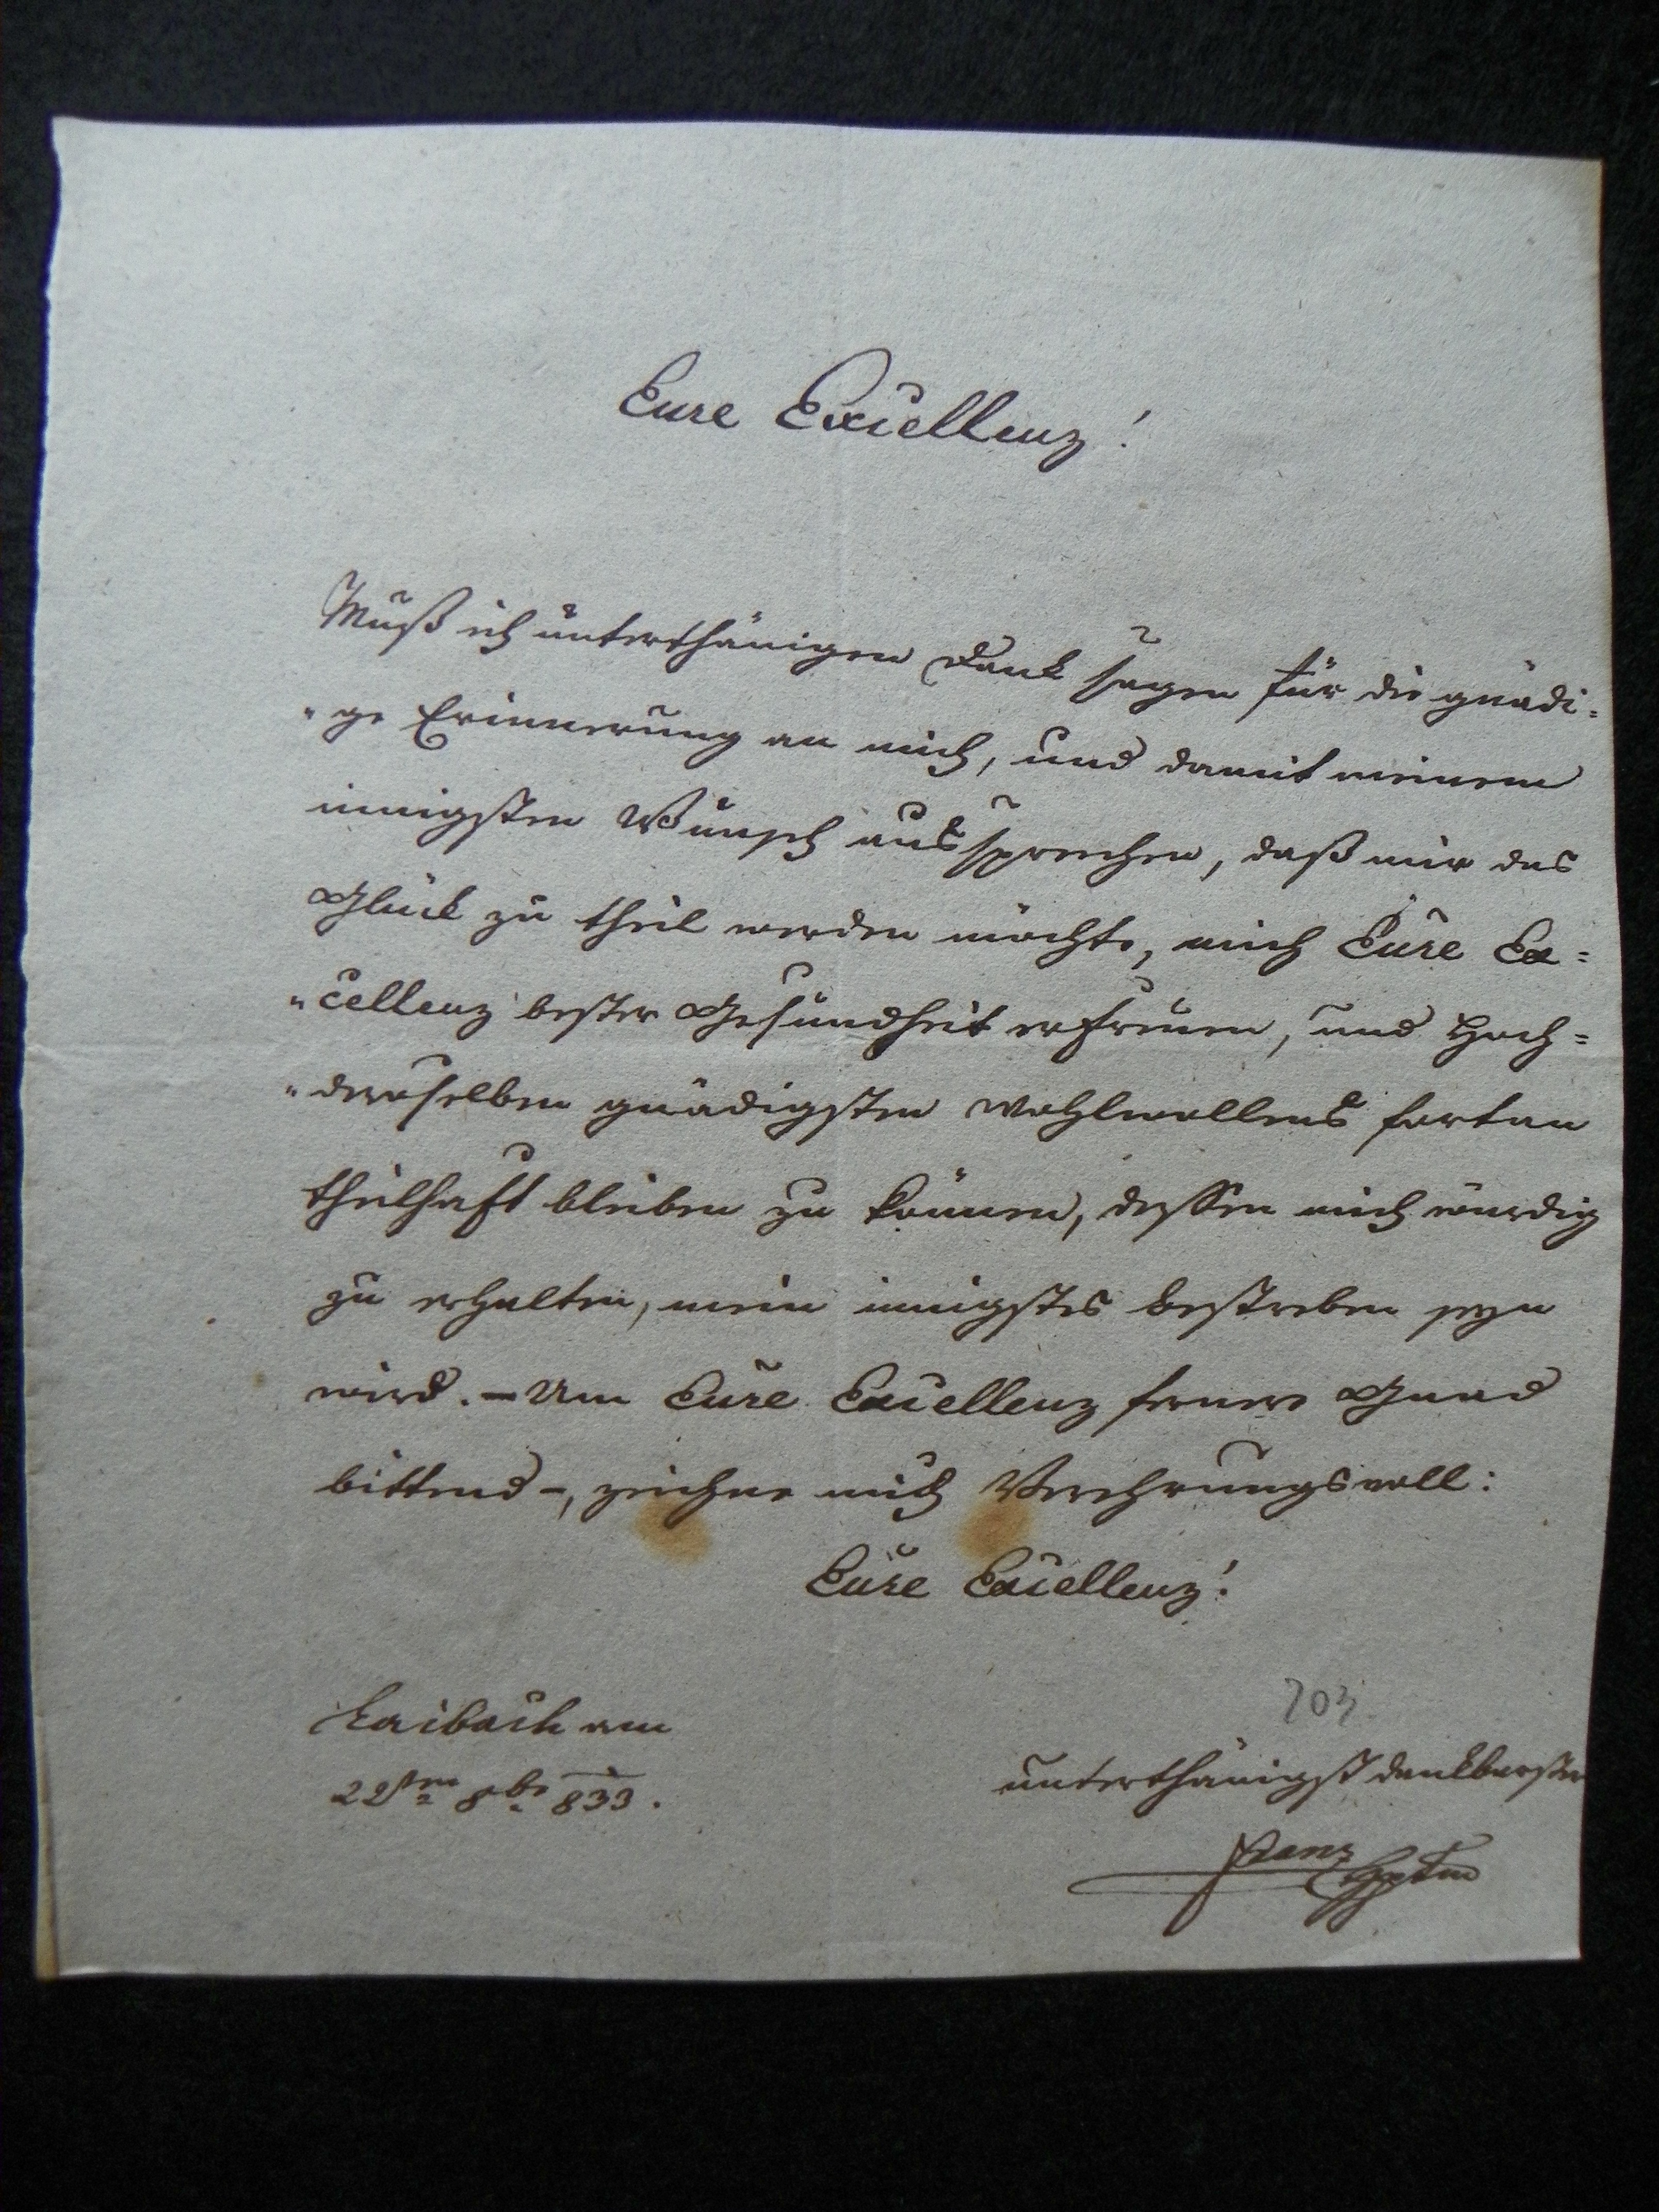 Eure Excellenz!
Muß ich unterthänigen Dank sagen für die gnädi=
"ge Erinnerung an mich, und damit meinem
innigsten Wunsch aussprechen, daß mir das
Glück zu theil werden möchte, mich Eure Ex=
"cellenz bester Gesundheit erfreuen, und Hoch=
"derselben gnädigsten Wohlwollens fortan
theilhaft bleiben zu können, dessen mich würdig
zu erhalten, mein innigstes bestreben seyn
wird. – Um Eure Excellenz fernere Gnad
bittend –, zeichne mich Verehrungsvoll:
Eure Excellenz!
Laibach am
22ten 8br 833.
703
unterthänigst dankbarster
Franz